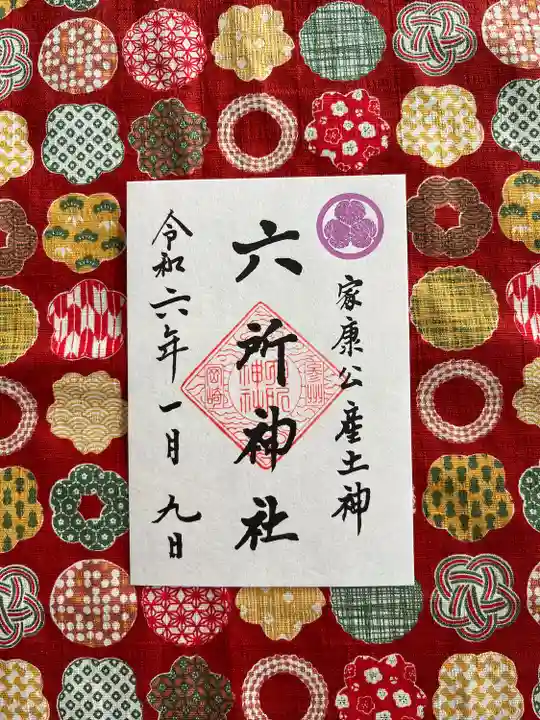 家康公産土神
六所神社
令和六年一月九日
岡崎
六所
神社